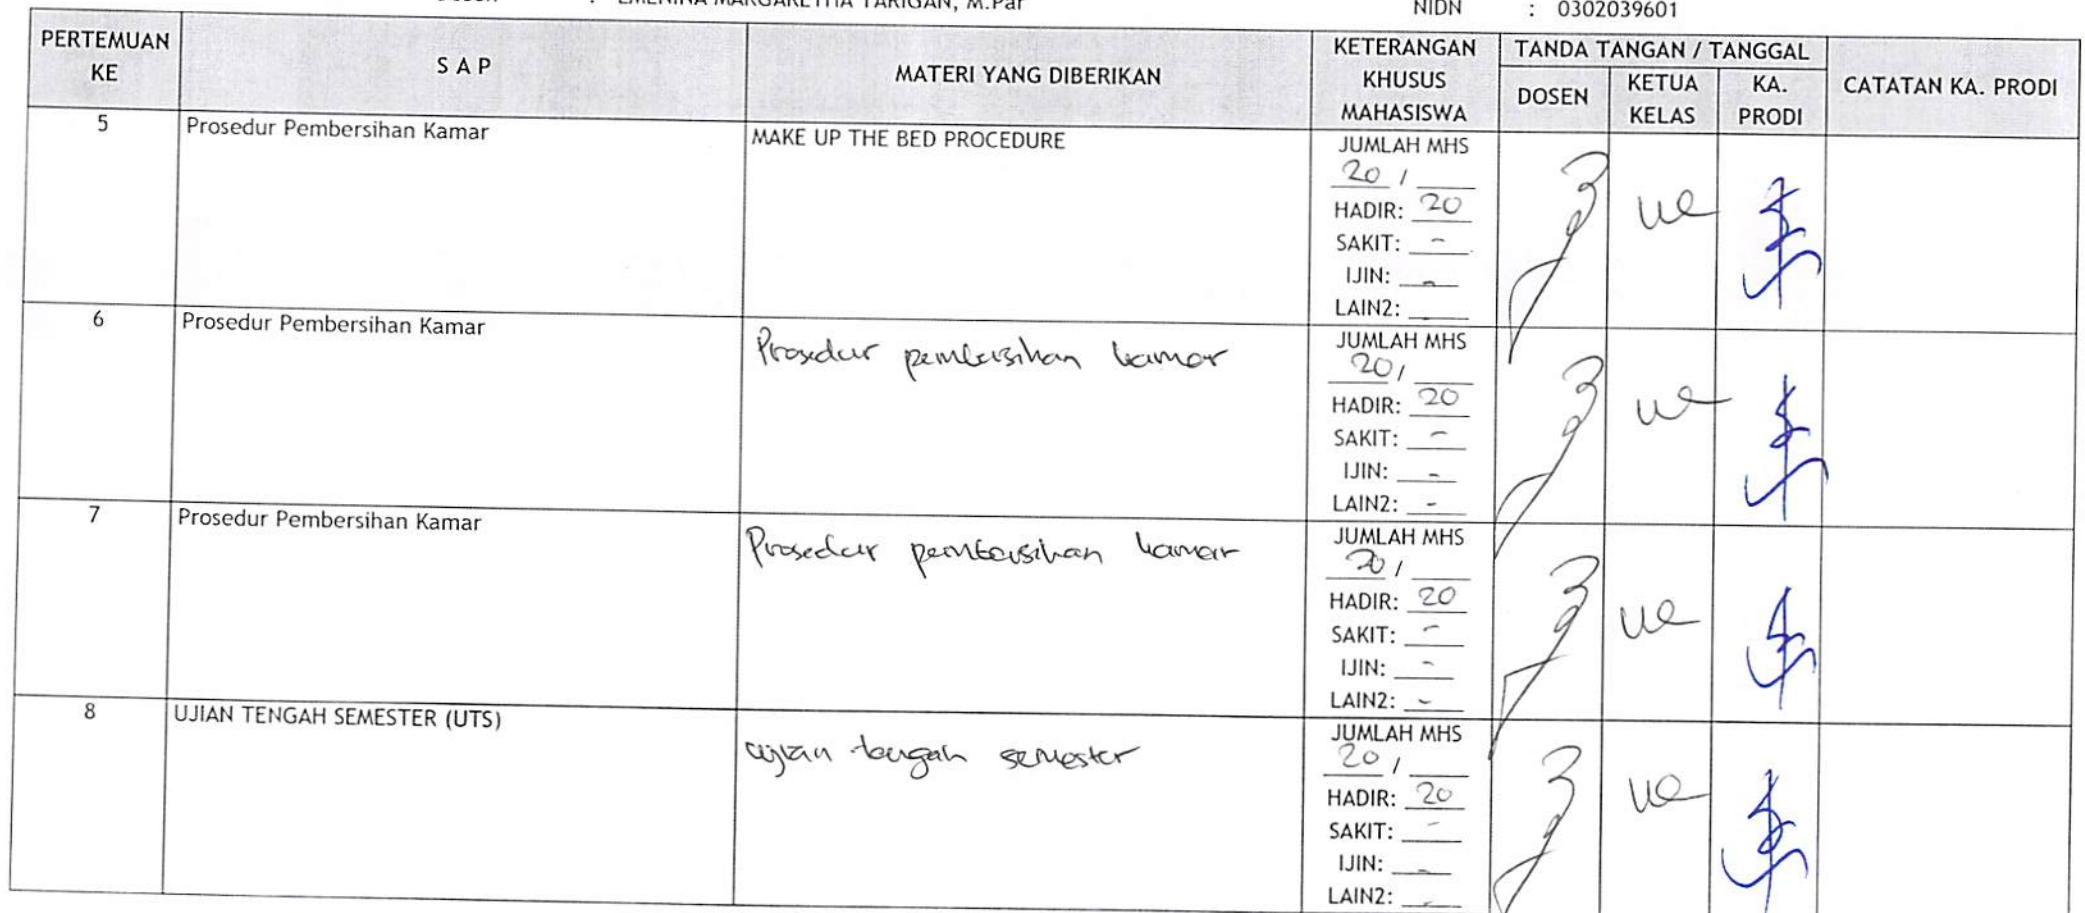 : EMENINA MARGARETHA TARIGAN, M.Par
NIDN : 0302039601
PERTEMUAN KE
S A P
MATERI YANG DIBERIKAN
KETERANGAN KHUSUS MAHASISWA
TANDA TANGAN / TANGGAL
DOSEN
KETUA KELAS
KA. PRODI
CATATAN KA. PRODI
5
Prosedur Pembersihan Kamar
MAKE UP THE BED PROCEDURE
JUMLAH MHS
20 /
HADIR: 20
SAKIT: -
IJIN: -
LAIN2:
6
Prosedur Pembersihan Kamar
Prosedur pembersihan kamar
JUMLAH MHS
20 /
HADIR: 20
SAKIT: -
IJIN: -
LAIN2: -
7
Prosedur Pembersihan Kamar
Prosedur pembersihan kamar
JUMLAH MHS
20 /
HADIR: 20
SAKIT: -
IJIN: -
LAIN2: -
8
UJIAN TENGAH SEMESTER (UTS)
ujian tengah semester
JUMLAH MHS
20 /
HADIR: 20
SAKIT: -
IJIN: -
LAIN2: -